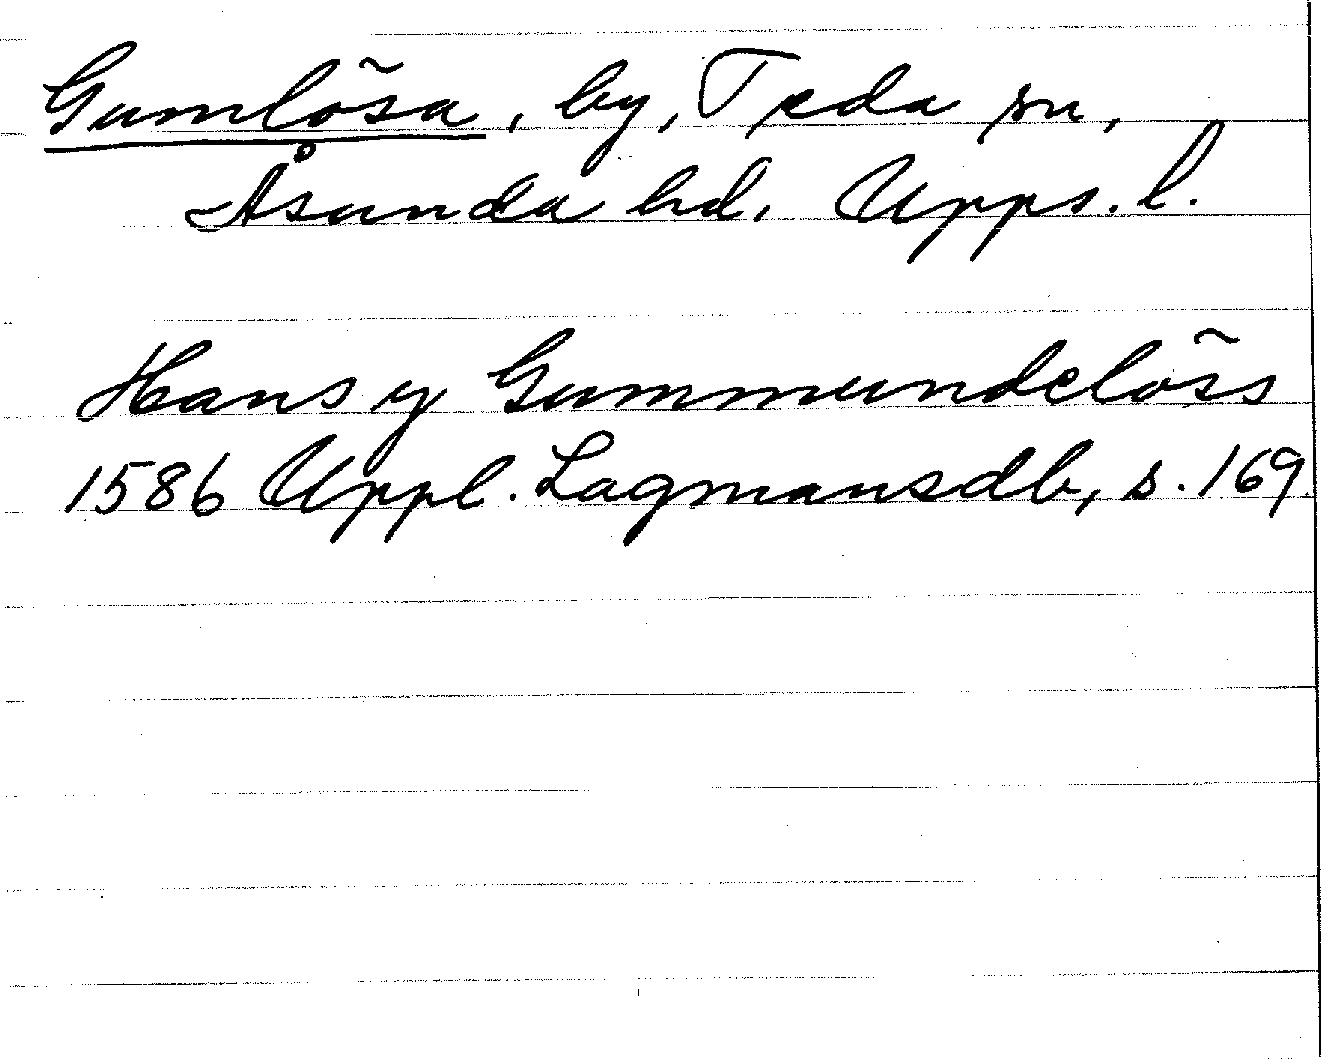 Gumlösa, by, Teda sn,
Åsunda hd. Upps. l.
Hans y Gummundelöss
1586 Uppl. Lagmansdb, s. 169.